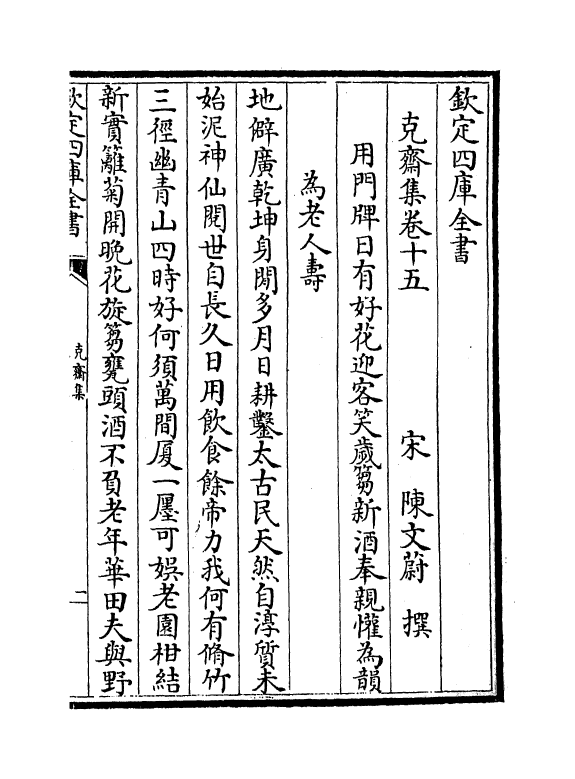 欽定四庫全書
克齋集卷十五
宋 陳文蔚 撰
用門牌日有好花迎客笑歲篘新酒奉親懽為韻
為老人壽
地僻廣乾坤身閒多月日耕鑿太古民天然自淳質未
始泥神仙閱世自長久日用飲食餘帝力我何有脩竹
三徑幽青山四時好何須萬間厦一廛可娯老園柑結
新實籬菊開晩花旋篘甕頭酒不負老年華田夫與野
欽定四庫全書
克齋集
二